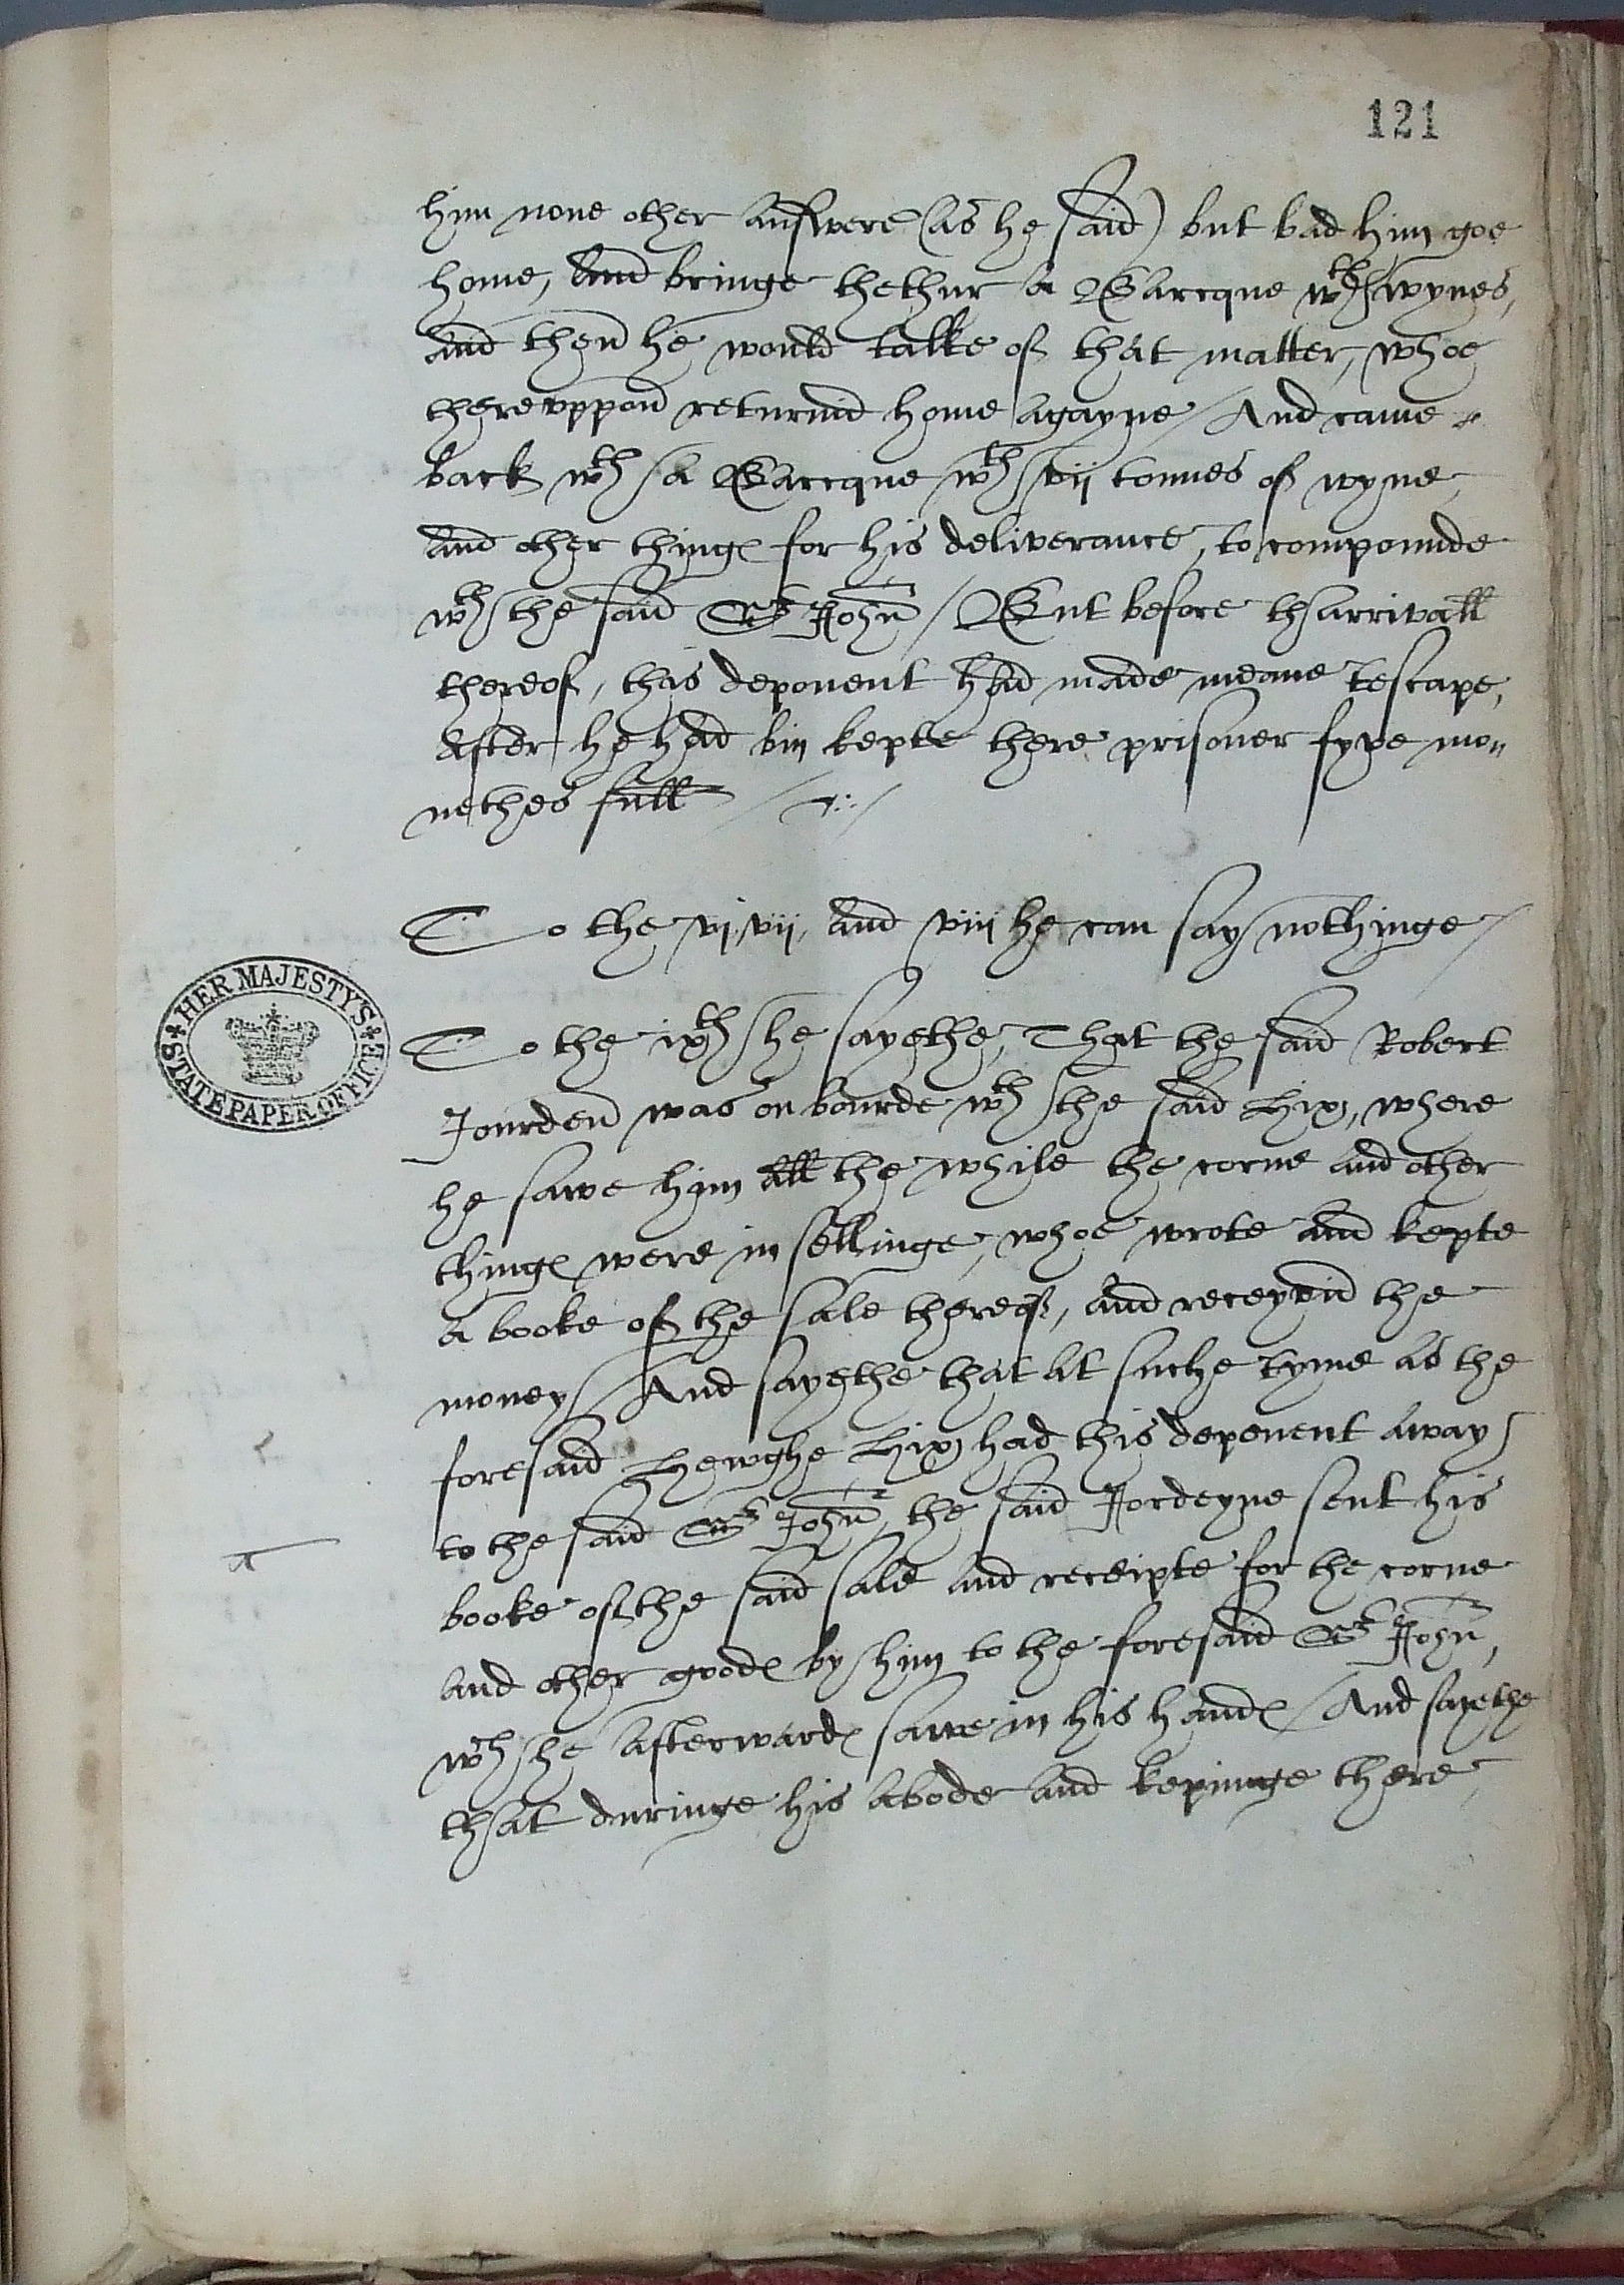 121
him none other answere (as he said) but bad him goe
home, And bringe thethur a Barcque wth wynes,
and then he would talke of that matter, whoe
thereuppon returnid home agayne / And came
back wth a Barcque wth vii tonnes of wyne,
and other thinges for his deliverance, to compounde
wth the said Sr John / But before tharrivall
thereof, this deponent had made meane tescape,
After he had bin kepte there prisoner fyve mo„
nethes full /
To the vi, vii, and viii he can say nothinge /
To the ixth he sayethe, That the said Robert
Jourden was on bourde wth the said Hix, where
he sawe him all the while the corne and other
thinges were in sellinge, whoe wrote and kepte
a booke of the sale thereof, and receyvid the
money / And sayethe that at suche tyme as the
foresaid Hewghe Hix had this deponent away
to the said Sr John, the said Jordeyne sent his
booke of the said sale and receipte for the corne
and other goodes by him to the foresaid Sr John,
wch he afterwardes sawe in his handes / And sayethe
that duringe his abode and kepinge there,
HER MAJESTY'S
STATE PAPER OFFICE